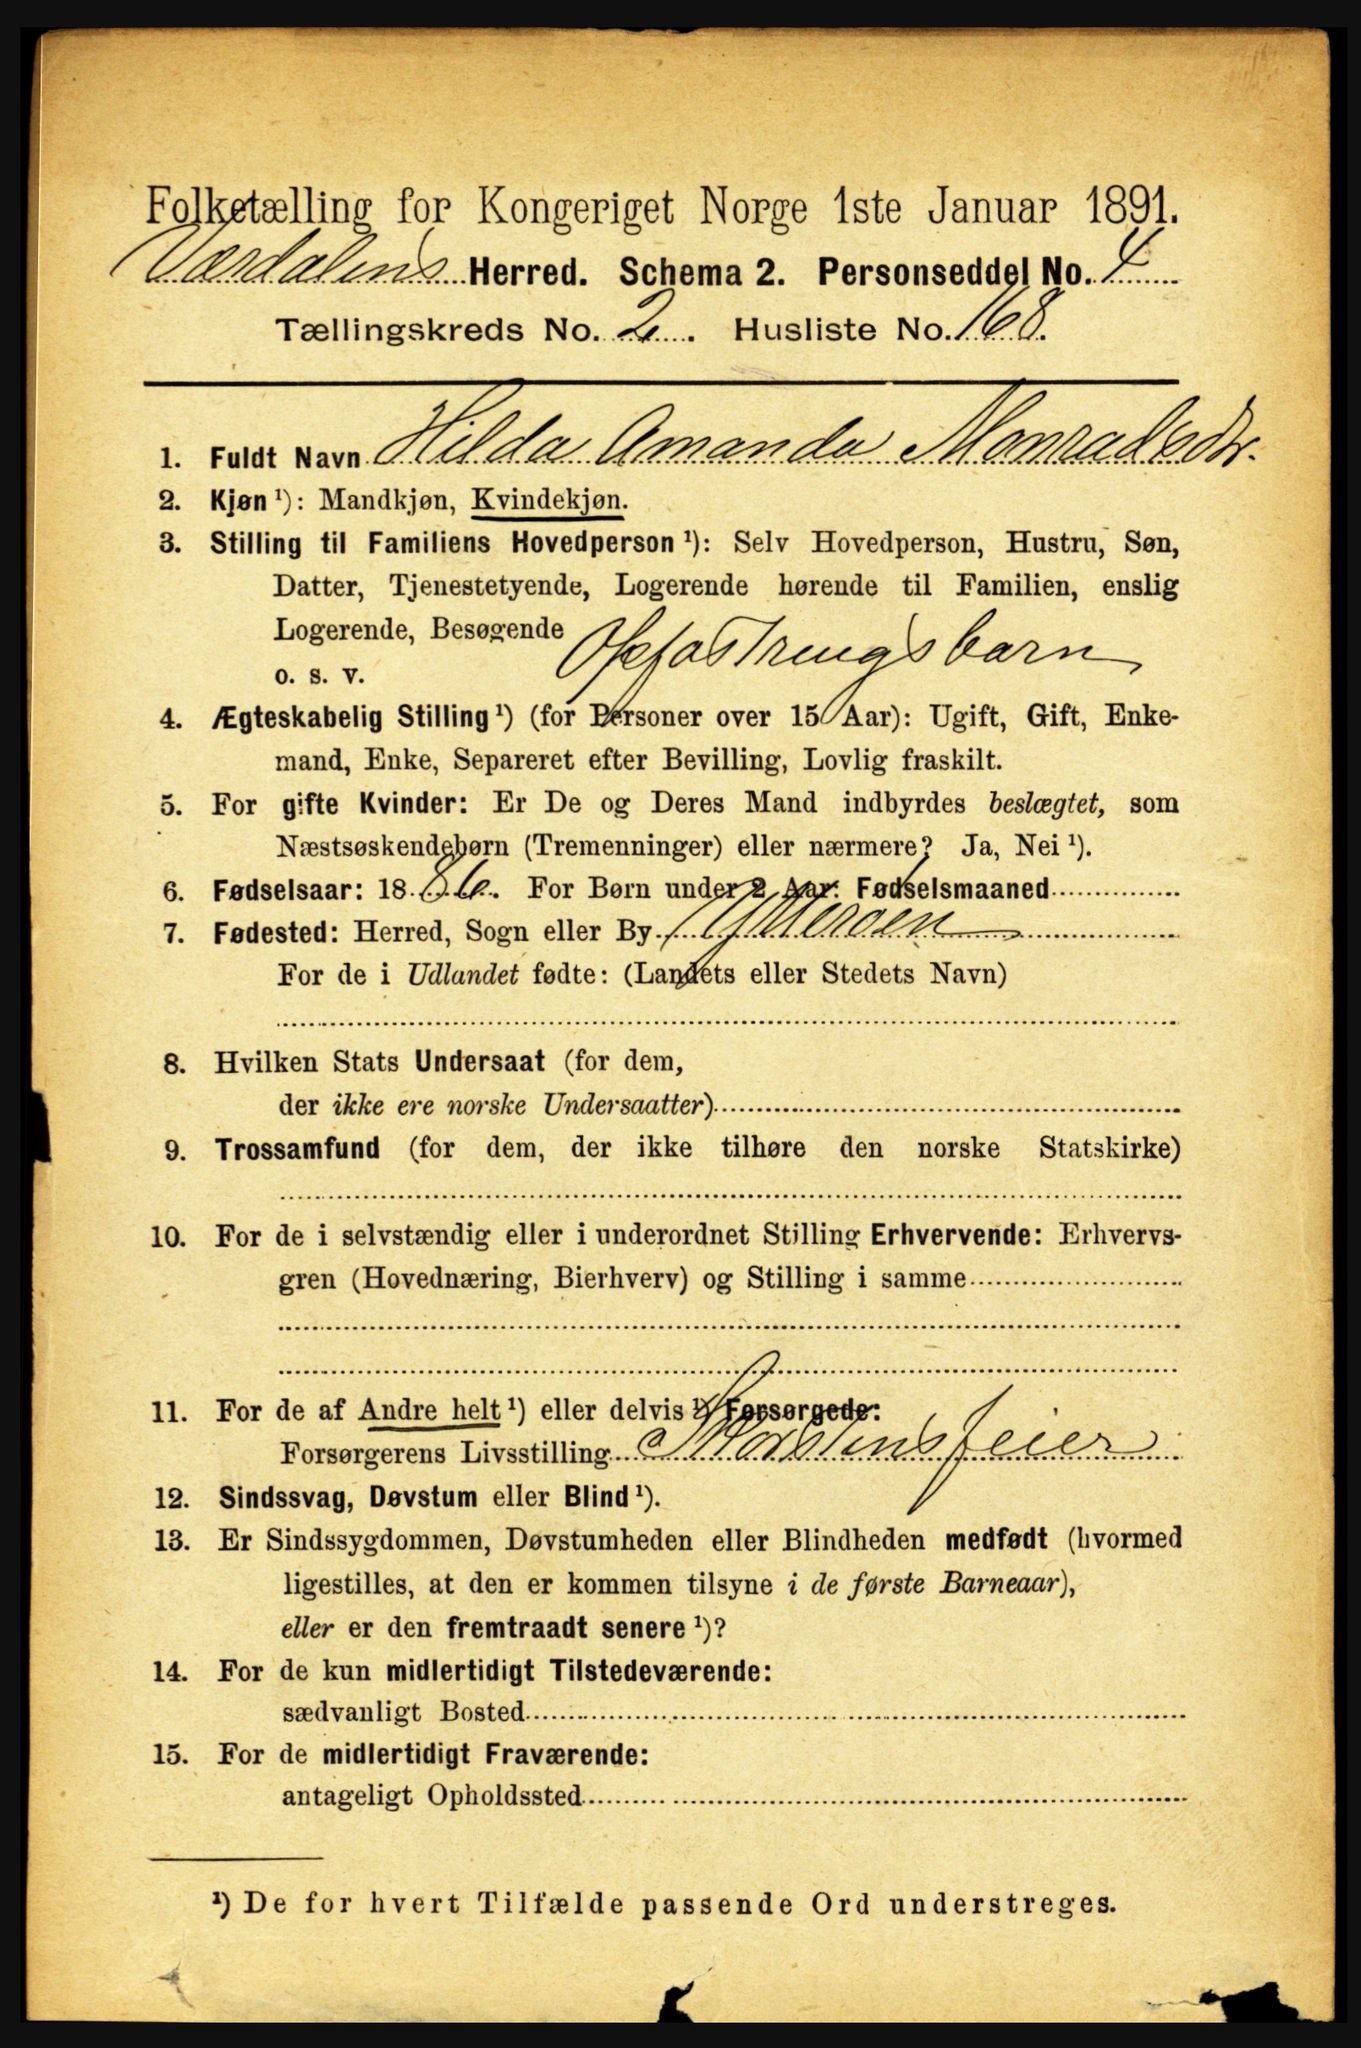 Folketælling for Kongeriget Norge 1ste Januar 1891.
Værdalens Herred. Schema 2. Personseddel No. 4
Tællingskreds No. 2. Husliste No. 168.
1. Fuldt Navn Hilda Amanda Monradsdtr.
2. Kjøn ¹): Mandkjøn, Kvindekjøn.
3. Stilling til Familiens Hovedperson ¹): Selv Hovedperson, Hustru, Søn,
Datter, Tjenestetyende, Logerende hørende til Familien, enslig
Logerende, Besøgende
o. s. v. Opfostringsbarn
4. Ægteskabelig Stilling ¹) (for Personer over 15 Aar): Ugift, Gift, Enke-
mand, Enke, Separeret efter Bevilling, Lovlig fraskilt.
5. For gifte Kvinder: Er De og Deres Mand indbyrdes beslægtet, som
Næstsøskendebørn (Tremenninger) eller nærmere? Ja, Nei ¹).
6. Fødselsaar: 1886. For Børn under 2 Aar: Fødselsmaaned
7. Fødested: Herred, Sogn eller By Ytterøen
For de i Udlandet fødte: (Landets eller Stedets Navn)
8. Hvilken Stats Undersaat (for dem,
der ikke ere norske Undersaatter)
9. Trossamfund (for dem, der ikke tilhøre den norske Statskirke)
10. For de i selvstændig eller i underordnet Stilling Erhvervende: Erhvervs-
gren (Hovednæring, Bierhverv) og Stilling i samme
11. For de af Andre helt ¹) eller delvis ¹) Forsørgede:
Forsørgerens Livsstilling Skorstensfeier
12. Sindssvag, Døvstum eller Blind ¹).
13. Er Sindssygdommen, Døvstumheden eller Blindheden medfødt (hvormed
ligestilles, at den er kommen tilsyne i de første Barneaar),
eller er den fremtraadt senere ¹)?
14. For de kun midlertidigt Tilstedeværende:
sædvanligt Bosted
15. For de midlertidigt Fraværende:
antageligt Opholdssted
¹) De for hvert Tilfælde passende Ord understreges.